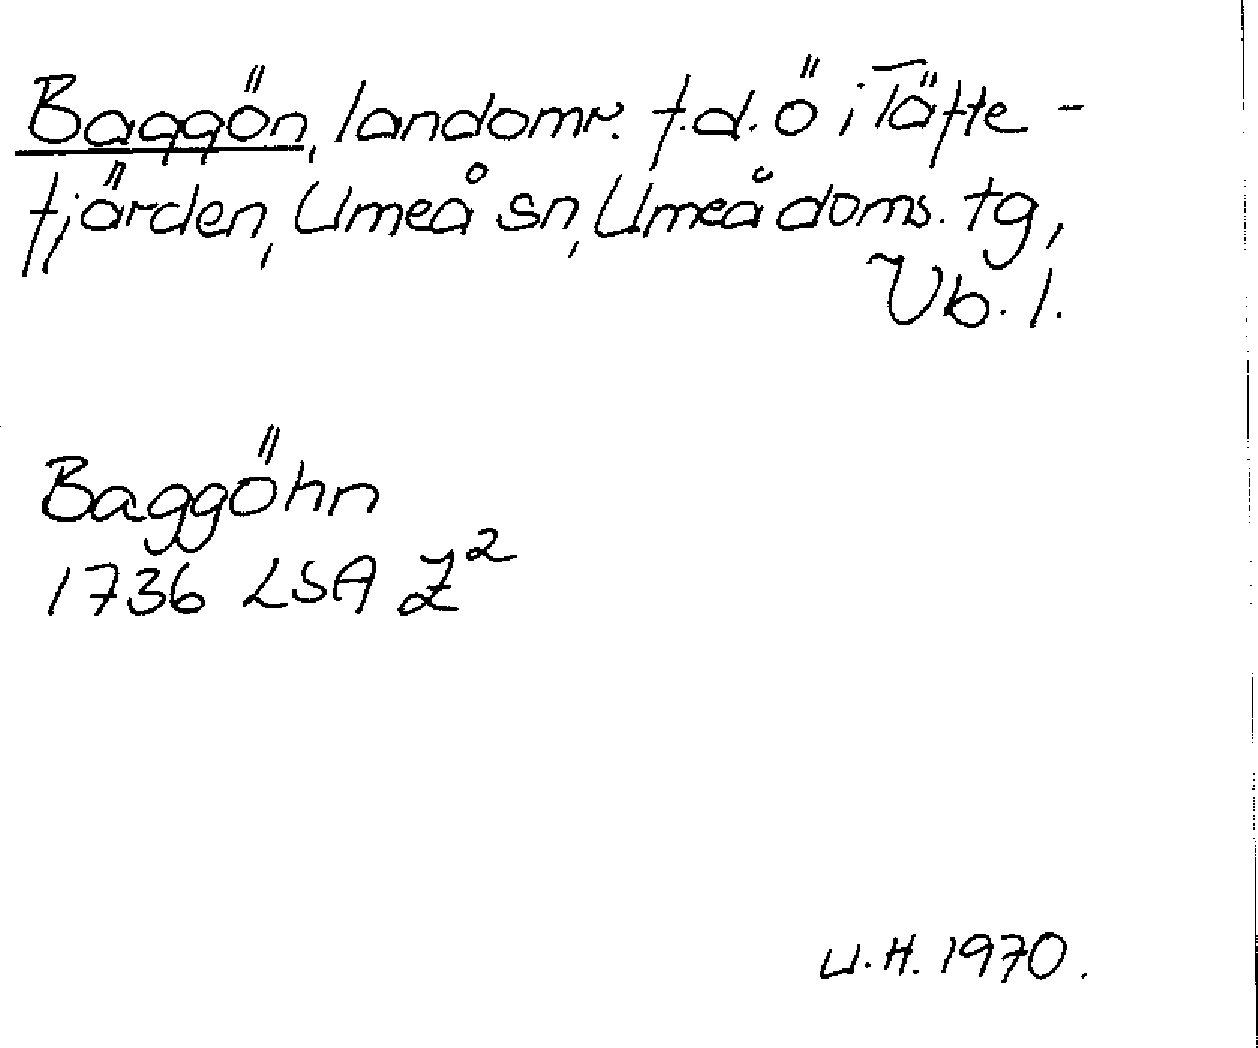 Baggön, landomr. f.d. ö i Täfte-
fjärden, Umeå sn, Umeå doms. tg,
Vb. l.
Baggöhn
1736 LSA Z²
U.H. 1970.